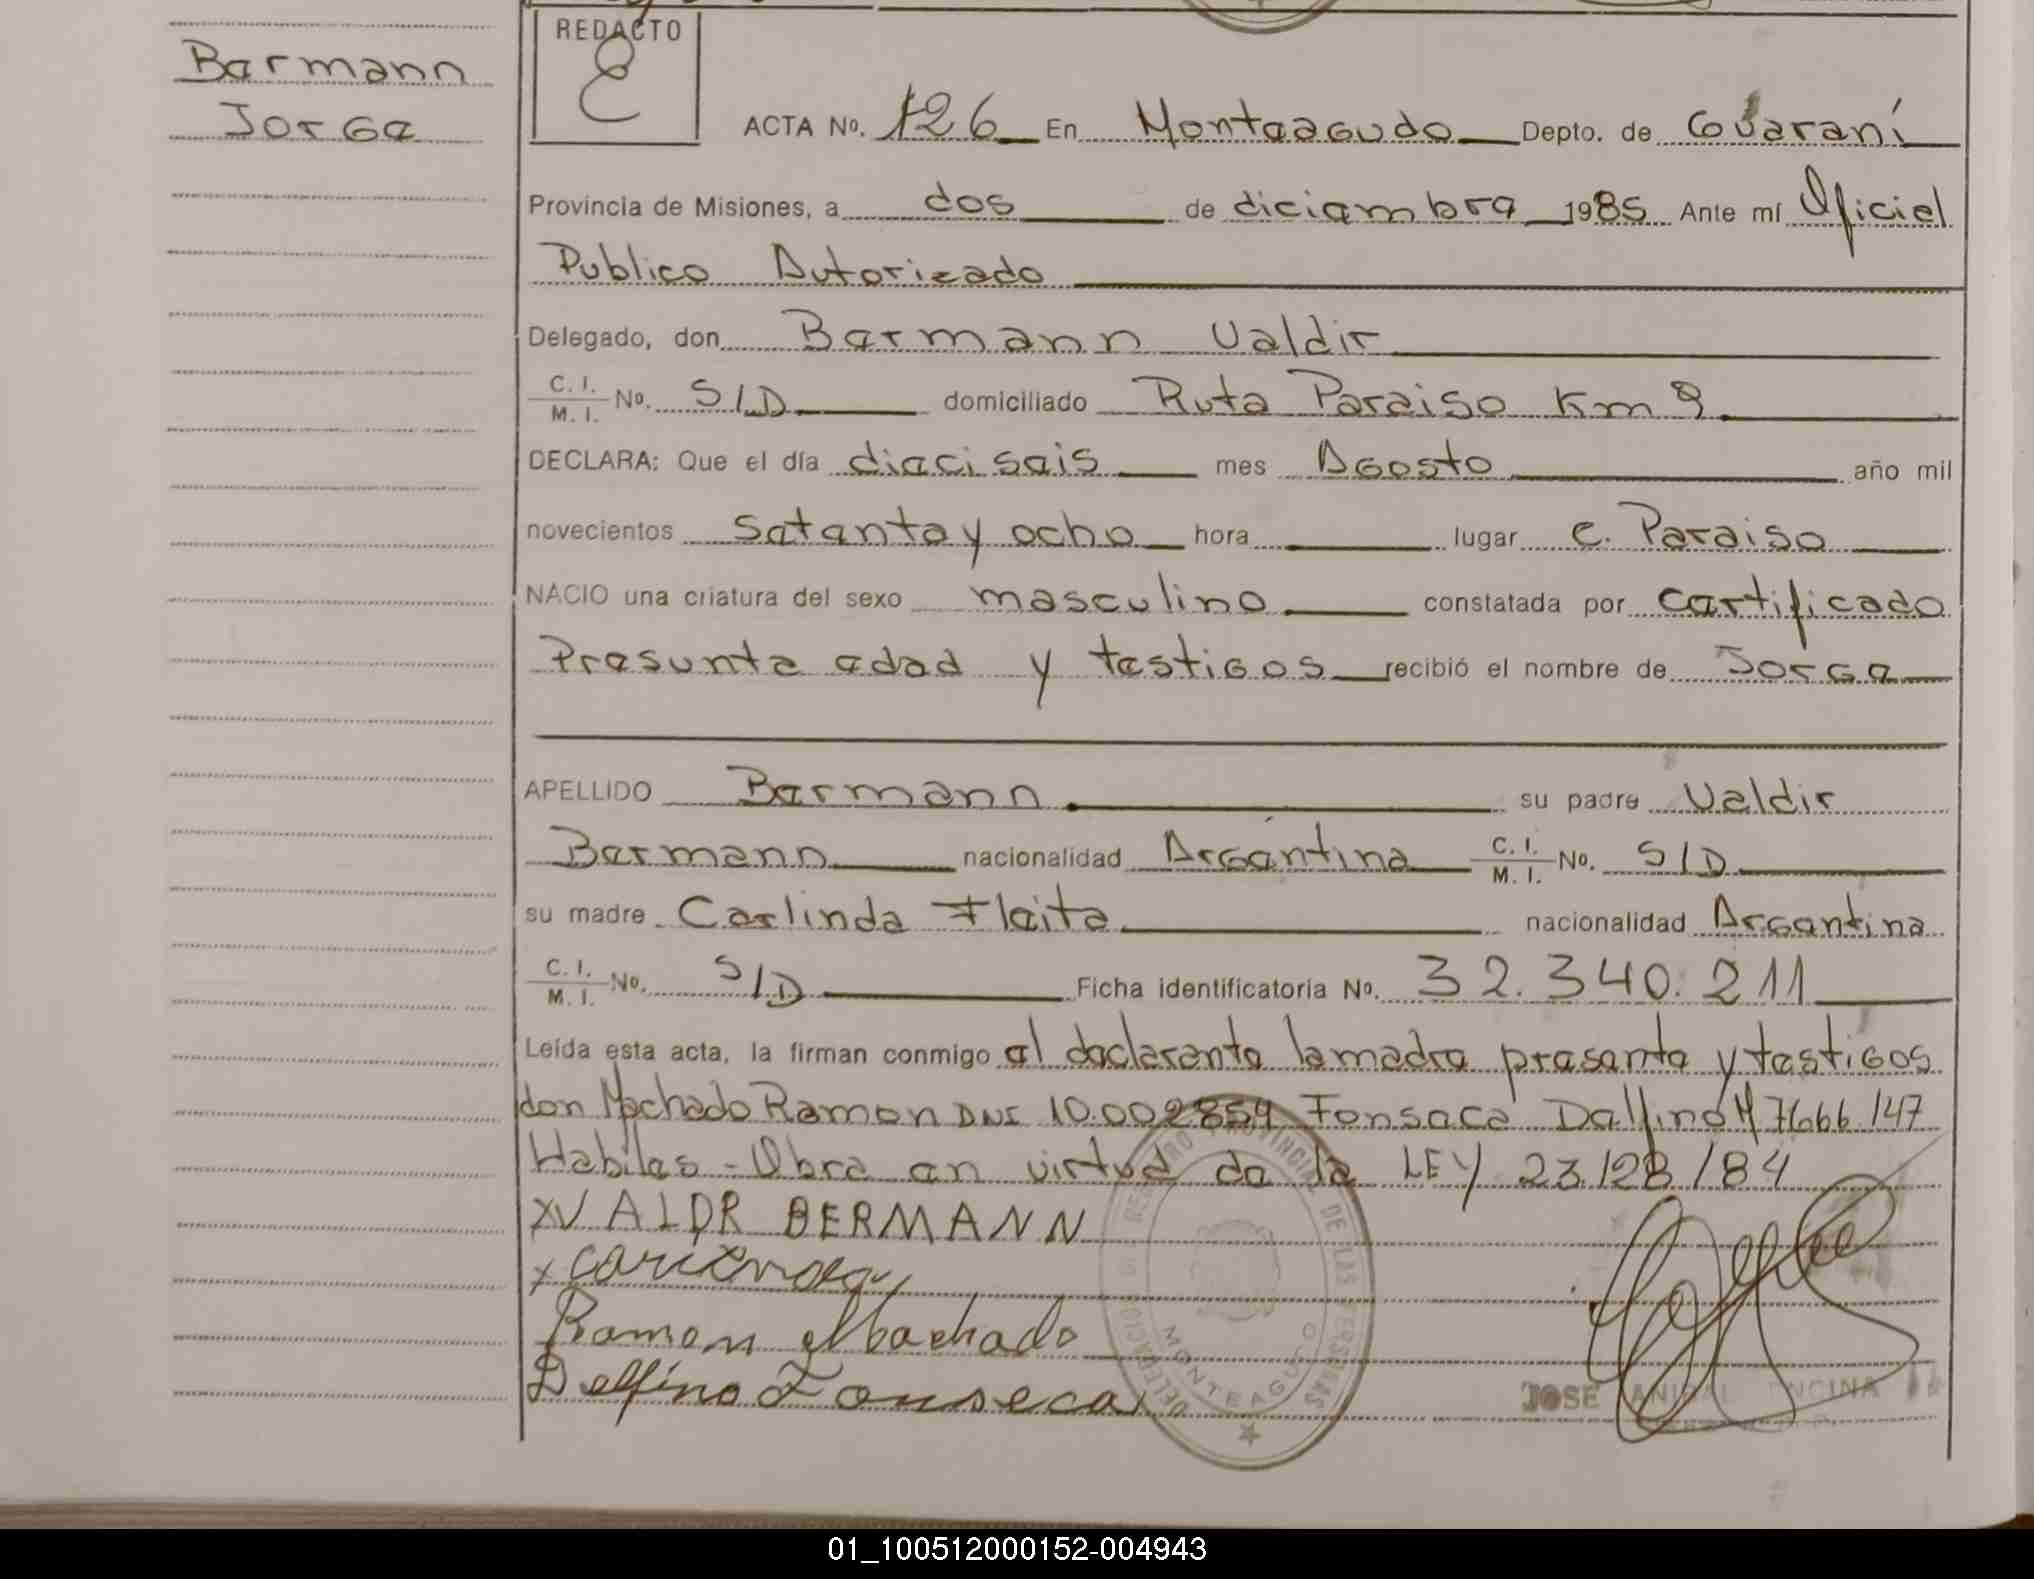 Bermann
Jorge
REDACTO
ACTA No. 126 En Monteagudo Depto. de Guaraní
Provincia de Misiones, a dos de diciembre 1985 Ante mí Oficial
Publico Autorizado
Delegado, don Bermann Valdir
C. I. / M. I. No. S/D domiciliado Ruta Paraiso Km 9
DECLARA: Que el día dieciseis mes Agosto año mil
novecientos setenta y ocho hora lugar C. Paraiso
NACIO una criatura del sexo masculino constatada por certificado
Presunta edad y testigos recibió el nombre de Jorge
APELLIDO Bermann su padre Valdir
Bermann nacionalidad Argentina C. I. / M. I. No. S/D
su madre Carlinda Fleita nacionalidad Argentina
C. I. / M. I. No. S/D Ficha identificatoria No. 32.340.211
Leída esta acta, la firman conmigo el declarante la madre presente y testigos
don Machado Ramon DNI 10.002854 Fonseca Delfino M 7666.147
Habiles - Obra en virtud de la LEY 23.128/84
x VALDR BERMANN
x
Ramon Machado
Delfino Fonseca
DELEGACION DEL REGISTRO PROVINCIAL DE LAS PERSONAS
MONTEAGUDO
JOSE ANIBAL ENCINA
01_100512000152-004943